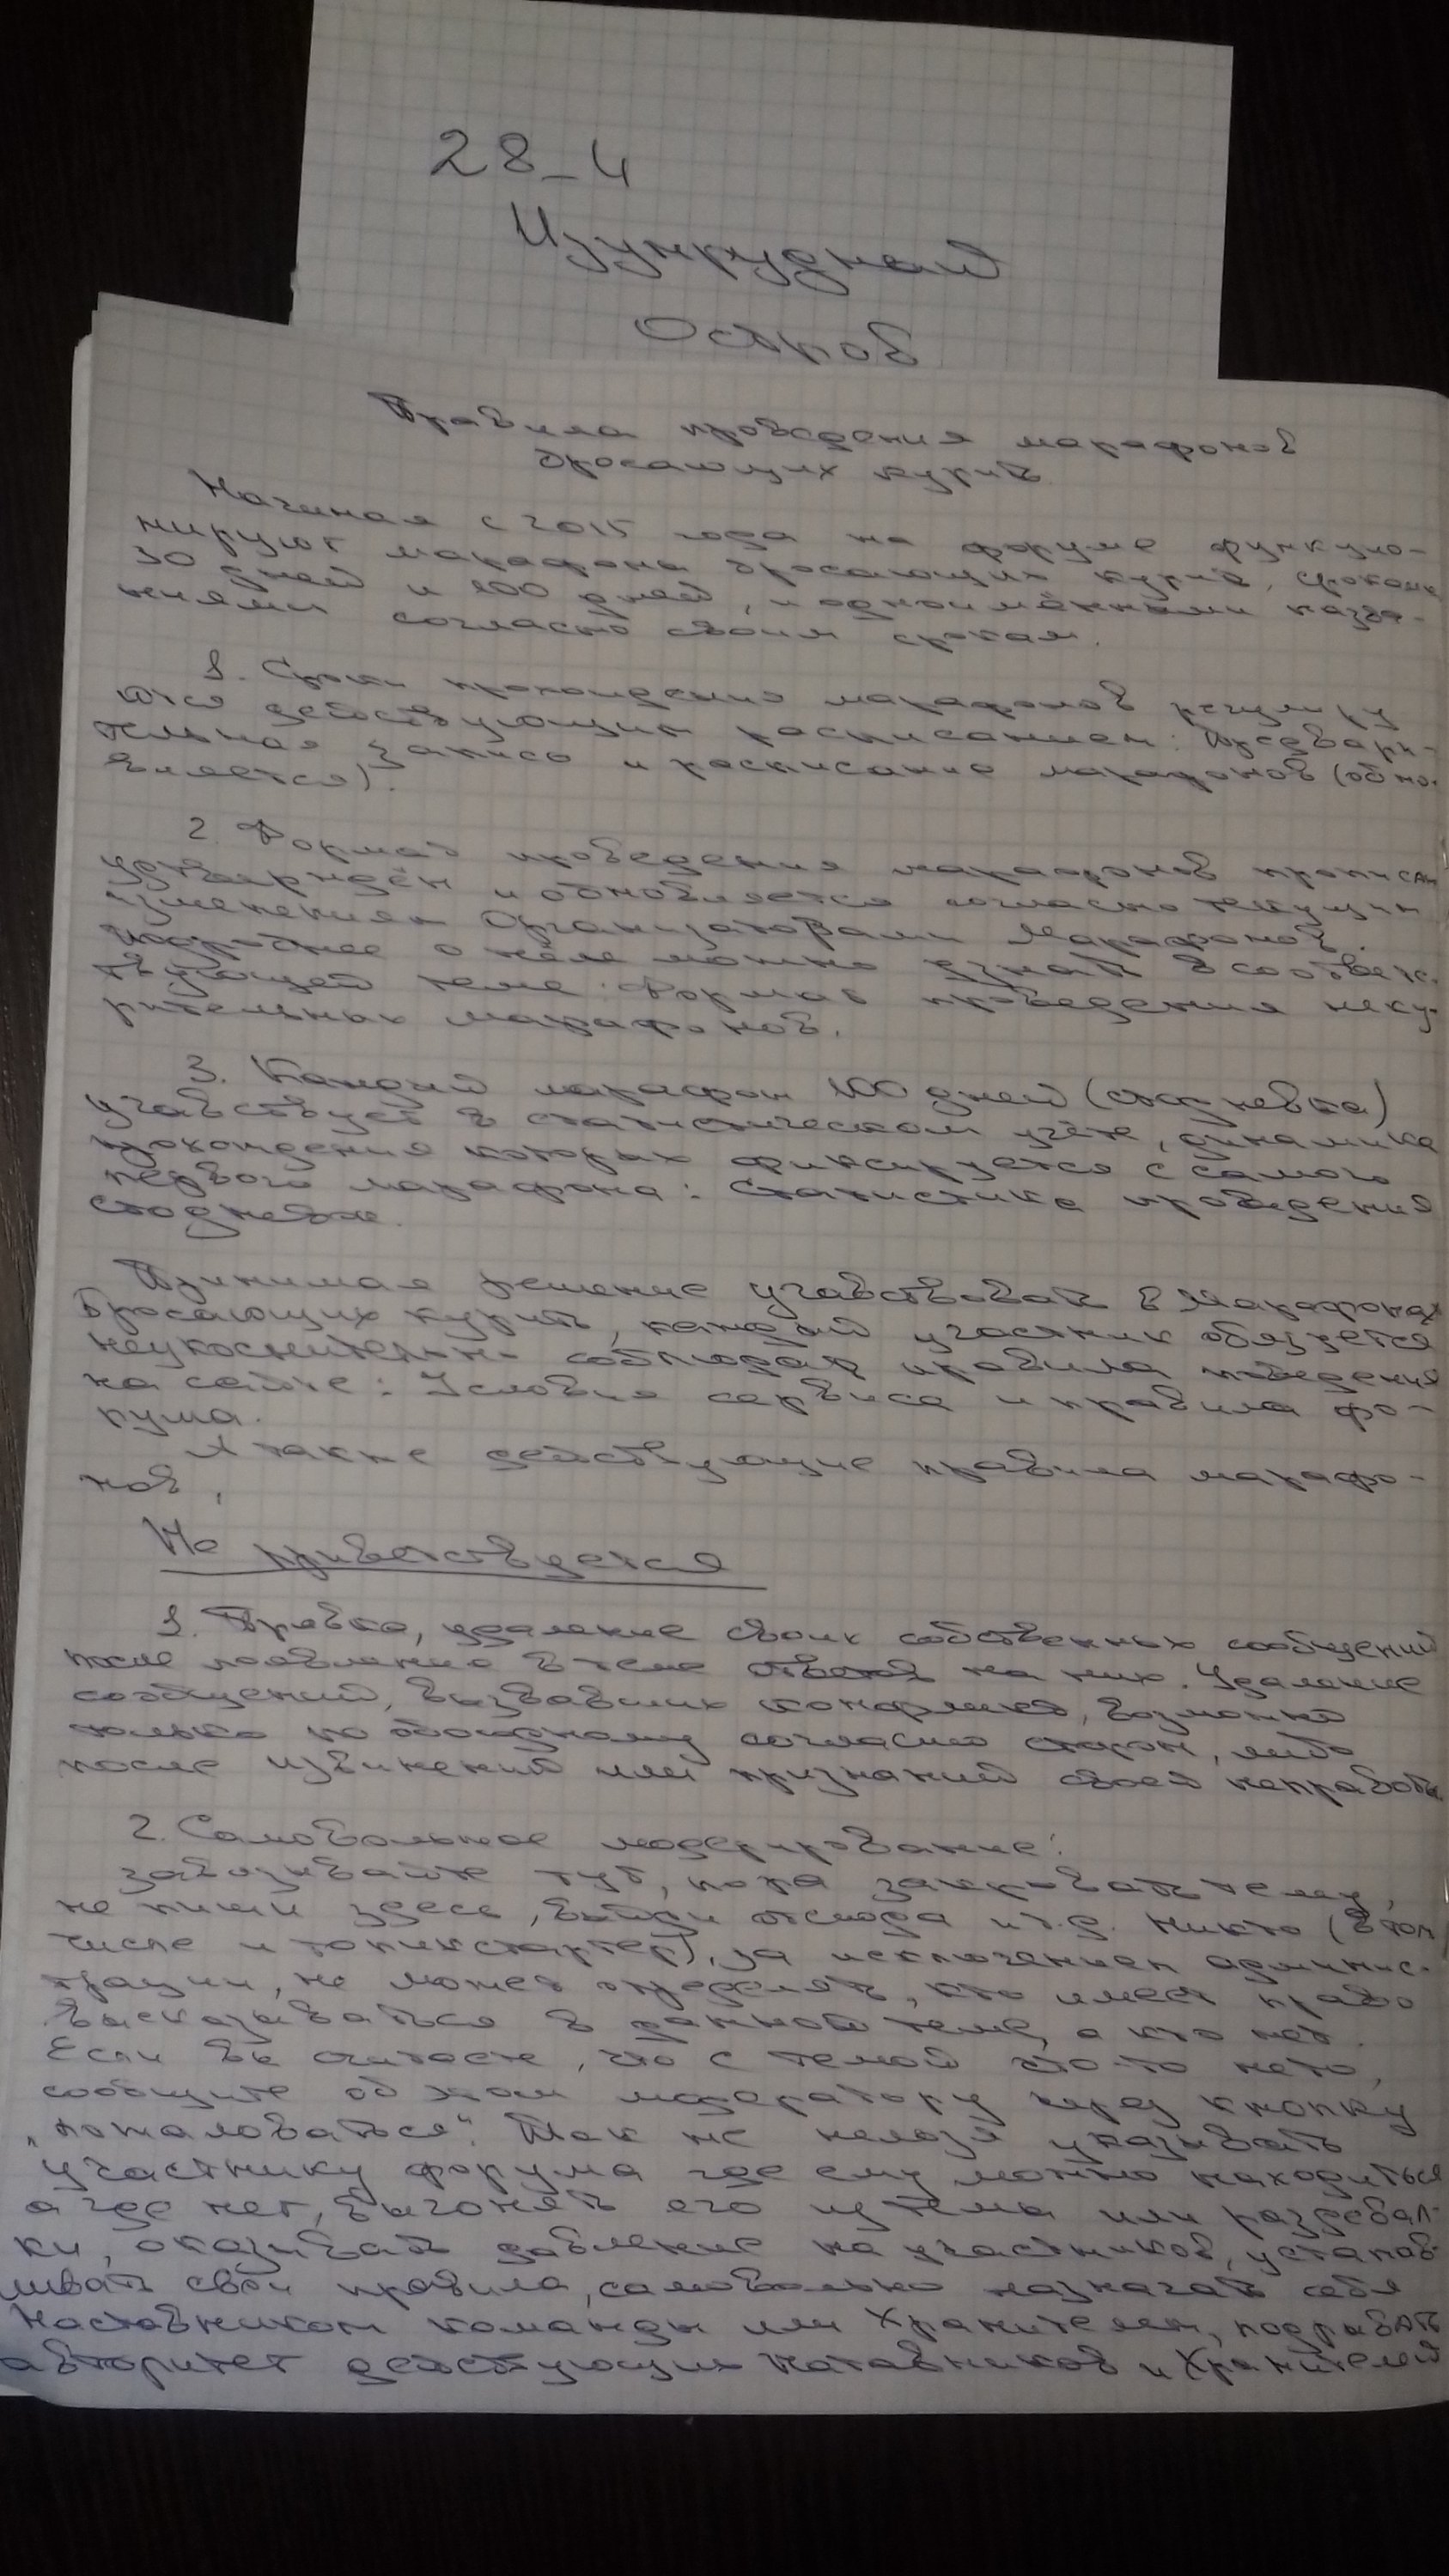 28_4
Изумрудный
Остров
Правила проведения марафонов
бросающих курить
Начиная с 2015 года на форуме функцио-
нируют марафоны бросающих курить, сроком
30 дней и 100 дней, и одноимёнными назва-
ниями согласно своим срокам.
1. Сроки прохождения марафонов регулиру
ются действующим расписанием: Предвари-
тельная запись и расписание марафонов (обно-
вляется).
2. Формат проведения марафонов прописан
утверждён и обновляется согласно текущим
изменениям Организаторами Марафонов.
Подробнее о нём можно узнать в соответс-
твующей теме: Формат проведения неку-
рительных марафонов.
3. Каждый марафон 100 дней (стодневка)
участвует в статистическом учёте, динамика
прохождения которых фиксируется с самого
первого марафона: Статистика проведения
стодневок.
Принимая решение участвовать в Марафонах
Бросающих курить, каждый участник обязуется
неукоснительно соблюдать правила поведения
на сайте: Условия сервиса и правила фо-
рума.
А также действующие правила марафо-
нов,
Не приветствуется
1. Правка, удаление своих собственных сообщений
после появления в теме ответов на них. Удаление
сообщений, вызвавших конфликт, возможно
только по обоюдному согласию сторон, либо
после извинений или признаний своей неправоты.
2. Самовольное модерирование:
завязывайте тут, пора закрывать тему,
не пиши здесь, выйди отсюда и т.д. Никто (в том
числе и топикстартер), за исключением админис-
трации, не может определять, кто имеет право
высказываться в данной теме, а кто нет.
Если вы считаете, что с темой что-то не то,
сообщите об этом модератору через кнопку
„пожаловаться". Так же нельзя указывать
участнику форума где ему можно находиться
а где нет, выгонять его из темы или раздевал-
ки, оказывать давление на участников, устанав-
ливать свои правила, самовольно назначать себя
Наставником команды или Хранителем, подрывать
авторитет действующих Наставников и Хранителей